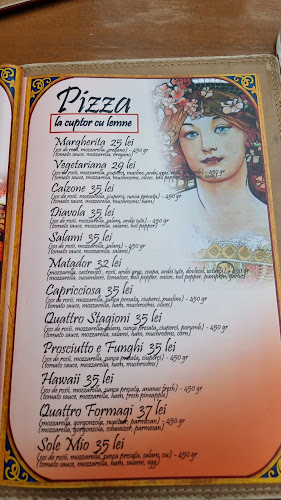 Pizza
la cuptor cu lemne
Margherita 25 lei
(sos de rosii, mozzarella, oregano) - 450 gr
(tomato sauce, mozzarella, oregano)
Vegetariana 29 lei
(sos de rosii, mozzarella, ciuperci, masline, ardei, - 450 gr
(tomato sauce, mozzarella, mushrooms, olives, bell pepper,
Calzone 35 lei
(sos de rosii, mozzarella, ciuperci, sunca presata) - 450 gr
(tomato sauce, mozzarella, mushrooms, ham)
Diavola 35 lei
(sos de rosii, mozzarella, salam, ardei iute) - 450 gr
(tomato sauce, mozzarella, salami, hot pepper)
Salami 35 lei
(sos de rosii, mozzarella, salam) - 450 gr
(tomato sauce, mozzarella, salami)
Matador 32 lei
(mozzarella, castraveti, rosii, ardei gras, ceapa, ardei iute, dovlecel, - 450 gr
(mozzarella, cucumbers, tomatoes, bell pepper, onion, hot pepper, pumpkin, garlic)
Capricciosa 35 lei
(sos de rosii, mozzarella, sunca presata, ciuperci, masline) - 450 gr
(tomato sauce, mozzarella, ham, mushrooms, olives)
Quattro Stagioni 35 lei
(sos de rosii, mozzarella, salam, sunca presata, ciuperci, porumb) - 450 gr
(tomato sauce, mozzarella, salami, ham, mushrooms, corn)
Prosciutto e Funghi 35 lei
(sos de rosii, mozzarella, sunca presata, ciuperci) - 450 gr
(tomato sauce, mozzarella, ham, mushrooms)
Hawaii 35 lei
(sos de rosii, mozzarella, sunca presata, ananas fresh) - 450 gr
(tomato sauce, mozzarella, ham, fresh pineapple)
Quattro Formagi 37 lei
(mozzarella, gorgonzola, svaitzer, parmezan) - 450 gr
(mozzarella, gorgonzola, schwaizer, parmesan)
Sole Mio 35 lei
(sos de rosii, mozzarella, sunca presata, salam, ou) - 450 gr
(tomato sauce, mozzarella, ham, salami, egg)